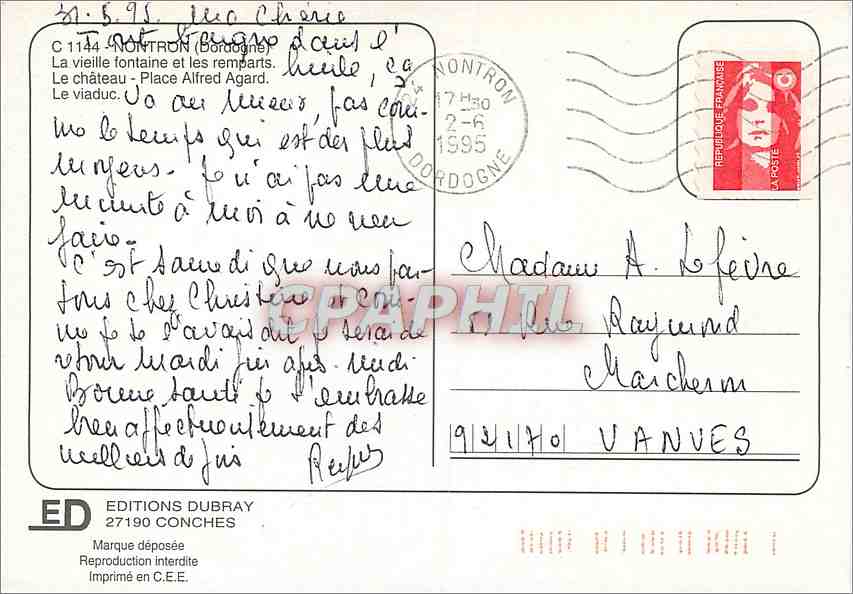 31.5.95. Ma Chérie
Tout baigne dans l'
huile, ça
C 1144 - NONTRON (Dordogne)
La vieille fontaine et les remparts.
Le château - Place Alfred Agard.
Le viaduc.
va au mieux, pas com-
me le temps qui est des plus
moyens. Je n'ai pas une
minute à moi à ne rien
faire.
C'est samedi que nous par-
tons chez Christiane et com-
me je te l'avais dit je serai de
retour mardi fin après-midi
Bonne santé je t'embrasse
bien affectueusement des
milliers de fois
NONTRON
17H30
2-6
1995
DORDOGNE
REPUBLIQUE FRANÇAISE
LA POSTE
Madame A. Lefèvre
Rue Raymond
Marcheron
92170 VANVES
CPAPHIL
ED
EDITIONS DUBRAY
27190 CONCHES
Marque déposée
Reproduction interdite
Imprimé en C.E.E.